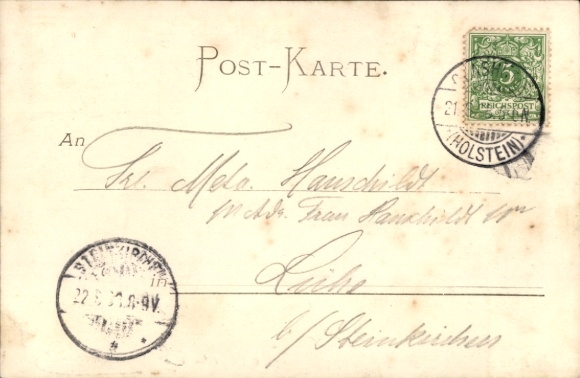 POST-KARTE.
5
REICHSPOST
21
(HOLSTEIN)
An
Frl. Meta Hauschildt
p. Adr. Frau Hauschildt
in Lühe
b/Steinkirchen
STEINKIRCHEN
22 8-9V.